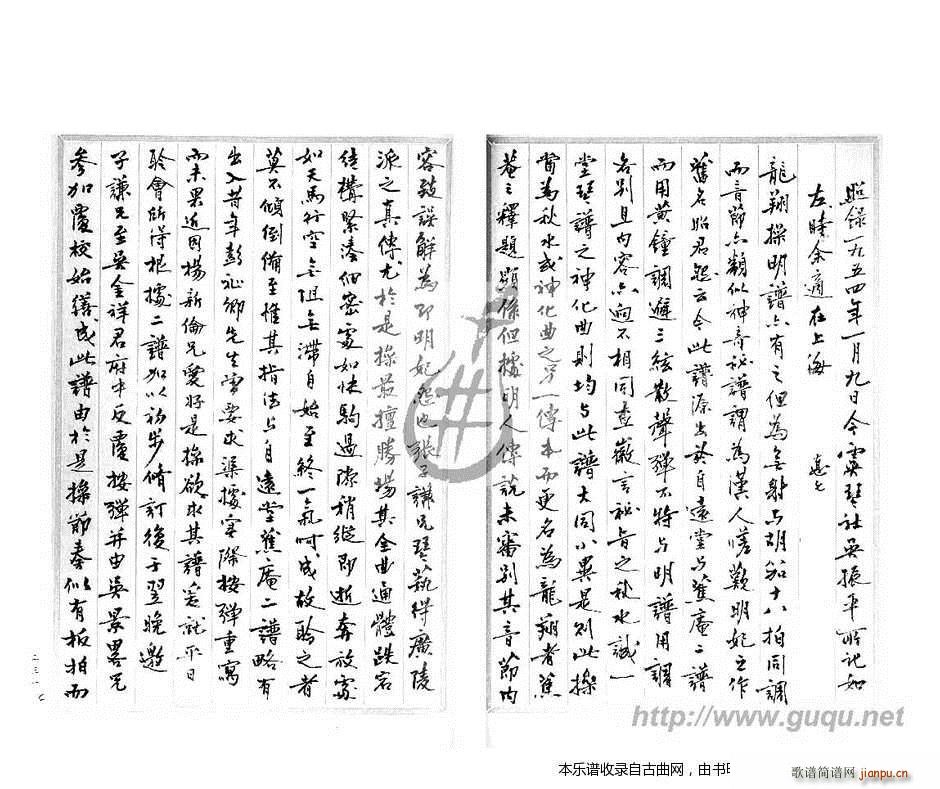 照录一九五四年一月九日今虞琴社吴振平所记如
左時余適在上海
龍翔操明譜亦有之但為無射与胡笳十八拍同調
而音節亦類似神奇秘譜謂為漢人嗟歎明妃之作
舊名昭君怨云今此譜源出於自遠堂与蕉庵二譜
而用黄鐘調緊三絃散聲彈不特与明譜用調
各别且内容亦向不相同查徽言秘旨之秋水誠一
堂琴譜之神化曲則均与此譜大同小異是则此操
當為秋水或神化曲之另一傳本而更名為龍翔者蕉
菴之釋題顯係但據明人傳説未審别其音節内
容鼓誤解為即明妃怨也張子謙兄琴藝得廣陵
派之真傳尤於是操最擅勝場其全曲通體跌宕
结構緊湊细密處如快駒過隙稍縱即逝奔放處
如天馬行空無阻無滯自始至終一氣呵成故聆之者
莫不傾倒備至惟其指法与自遠堂蕉庵二譜略有
出入昔年彭祉卿先生曾要求渠據实際按彈重寫
而未果近因楊新倫兄愛好是操欲求其譜爰就平日
聆會所得根據二譜加以初步修訂後于翌晚邀
子謙兄至吴金祥君府中反覆按彈并由吴景畧兄
參加覆校始繕成此譜由於是操節奏似有板拍而
http://www.guqu.net
本乐谱收录自古曲网，由书
歌谱简谱网
jianpu.cn